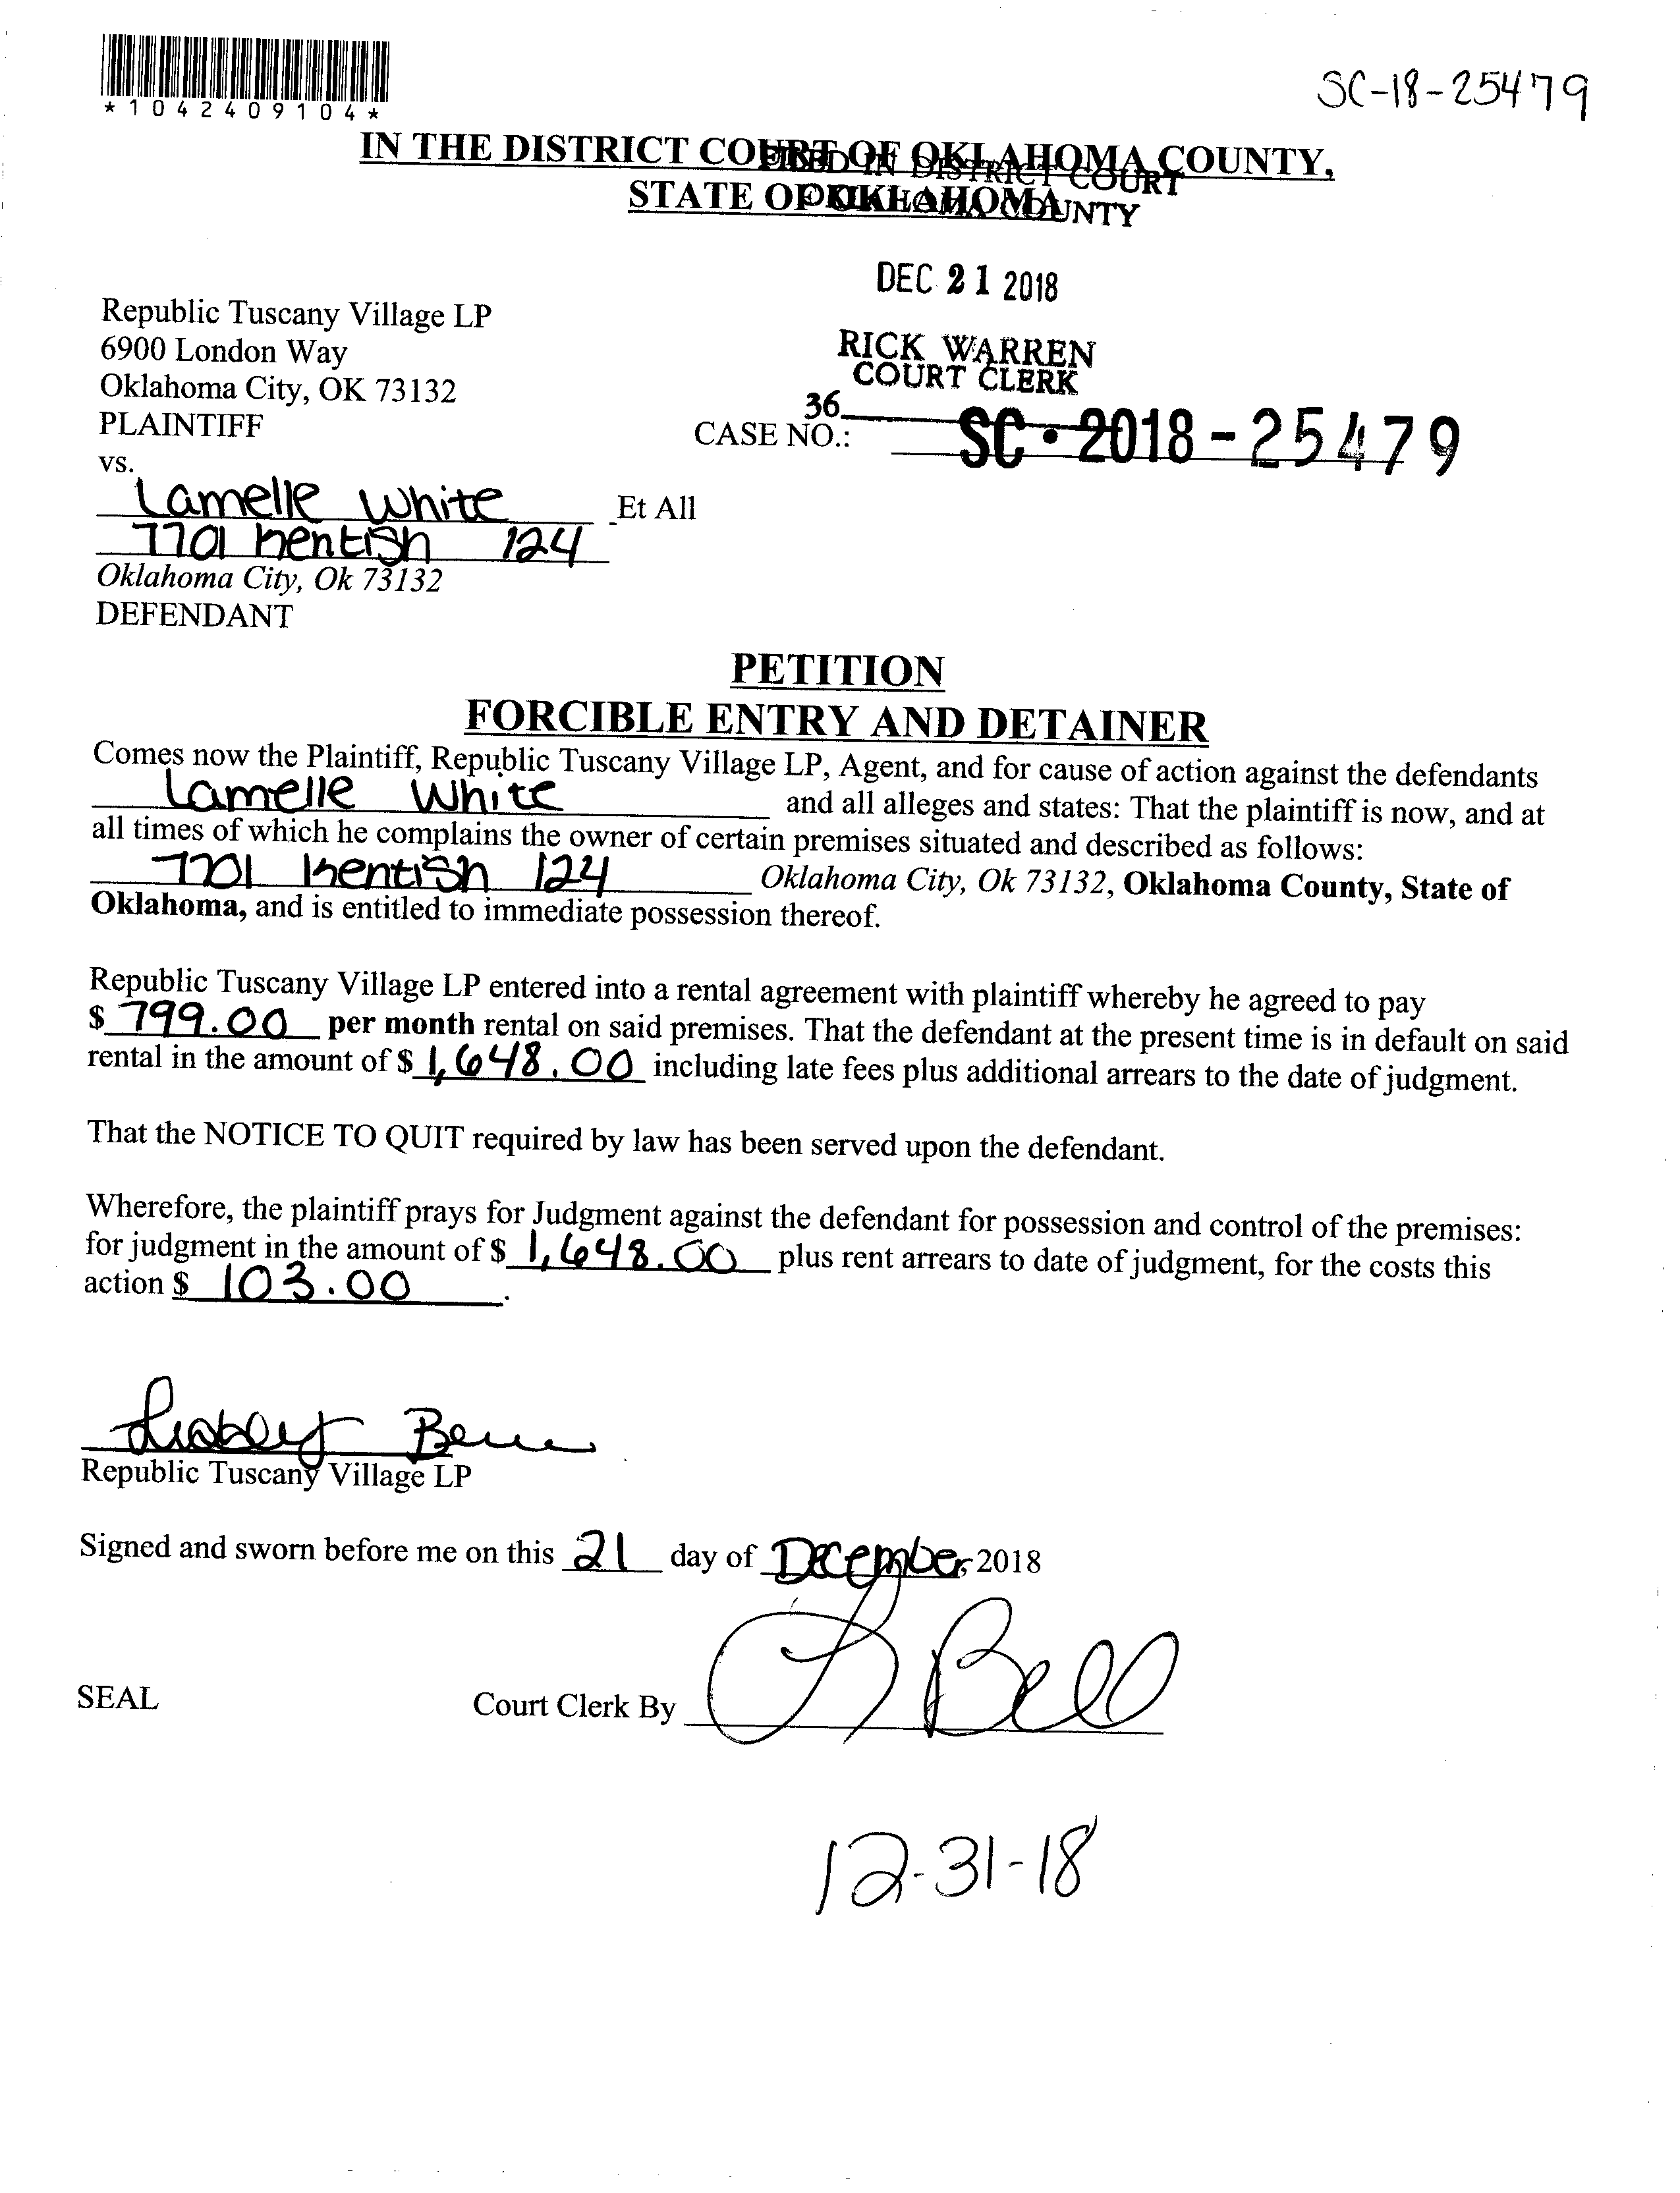 *1042409104*
SC-18-25479
IN THE DISTRICT COURT OF OKLAHOMA COUNTY,
STATE OF OKLAHOMA
FILED IN DISTRICT COURT
OKLAHOMA COUNTY
DEC 21 2018
RICK WARREN
COURT CLERK
36
Republic Tuscany Village LP
6900 London Way
Oklahoma City, OK 73132
PLAINTIFF
CASE NO.: SC-2018-25479
vs.
Lamelle White Et All
7701 Kentish 124
Oklahoma City, Ok 73132
DEFENDANT
PETITION
FORCIBLE ENTRY AND DETAINER
Comes now the Plaintiff, Republic Tuscany Village LP, Agent, and for cause of action against the defendants
Lamelle White and all alleges and states: That the plaintiff is now, and at
all times of which he complains the owner of certain premises situated and described as follows:
7701 Kentish 124 Oklahoma City, Ok 73132, Oklahoma County, State of
Oklahoma, and is entitled to immediate possession thereof.
Republic Tuscany Village LP entered into a rental agreement with plaintiff whereby he agreed to pay
$ 799.00 per month rental on said premises. That the defendant at the present time is in default on said
rental in the amount of $ 1,648.00 including late fees plus additional arrears to the date of judgment.
That the NOTICE TO QUIT required by law has been served upon the defendant.
Wherefore, the plaintiff prays for Judgment against the defendant for possession and control of the premises:
for judgment in the amount of $ 1,648.00 plus rent arrears to date of judgment, for the costs this
action $ 103.00.
Republic Tuscany Village LP
Signed and sworn before me on this 21 day of December, 2018
SEAL Court Clerk By L Bell
12-31-18